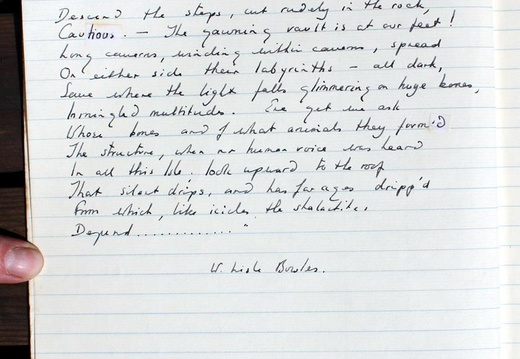 Descend the steps, cut rudely in the rock,
Cautious. — The yawning vault is at our feet!
Long caverns, winding within caverns, spread
On either side their labyrinths – all dark,
Save where the light falls glimmering on huge bones,
In mingled multitudes. Ere yet we ask
Whose bones and of what animals they form'd
The structure, when no human voice was heard
In all this Isle, look upward to the roof
That silent drips, and has for ages dripp'd
From which, like icicles, the stalactites
Depend .............. "
W. Lisle Bowles.